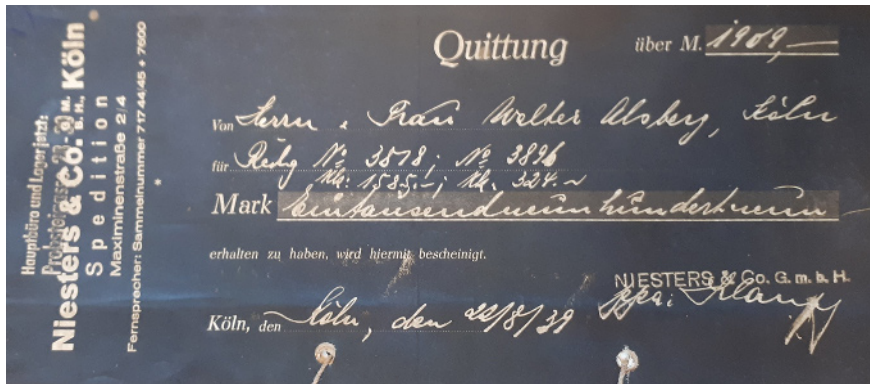 Hauptbüro und Lager jetzt:
Niesters & Co. G. m. b. H., Köln
Spedition
Maximinenstraße 2/4
Fernsprecher: Sammelnummer 717 44/45 + 7600
Quittung über M. 1909,—
Von Herrn u. Frau Walter Alsberg, Köln
für Rechg No 3818; No 3896
Mk: 1585.-; Mk. 324.-
Mark Eintausendneunhundertneun
erhalten zu haben, wird hiermit bescheinigt.
NIESTERS & Co. G. m. b. H.
ppa:
Köln, den Köln, den 22/8/39